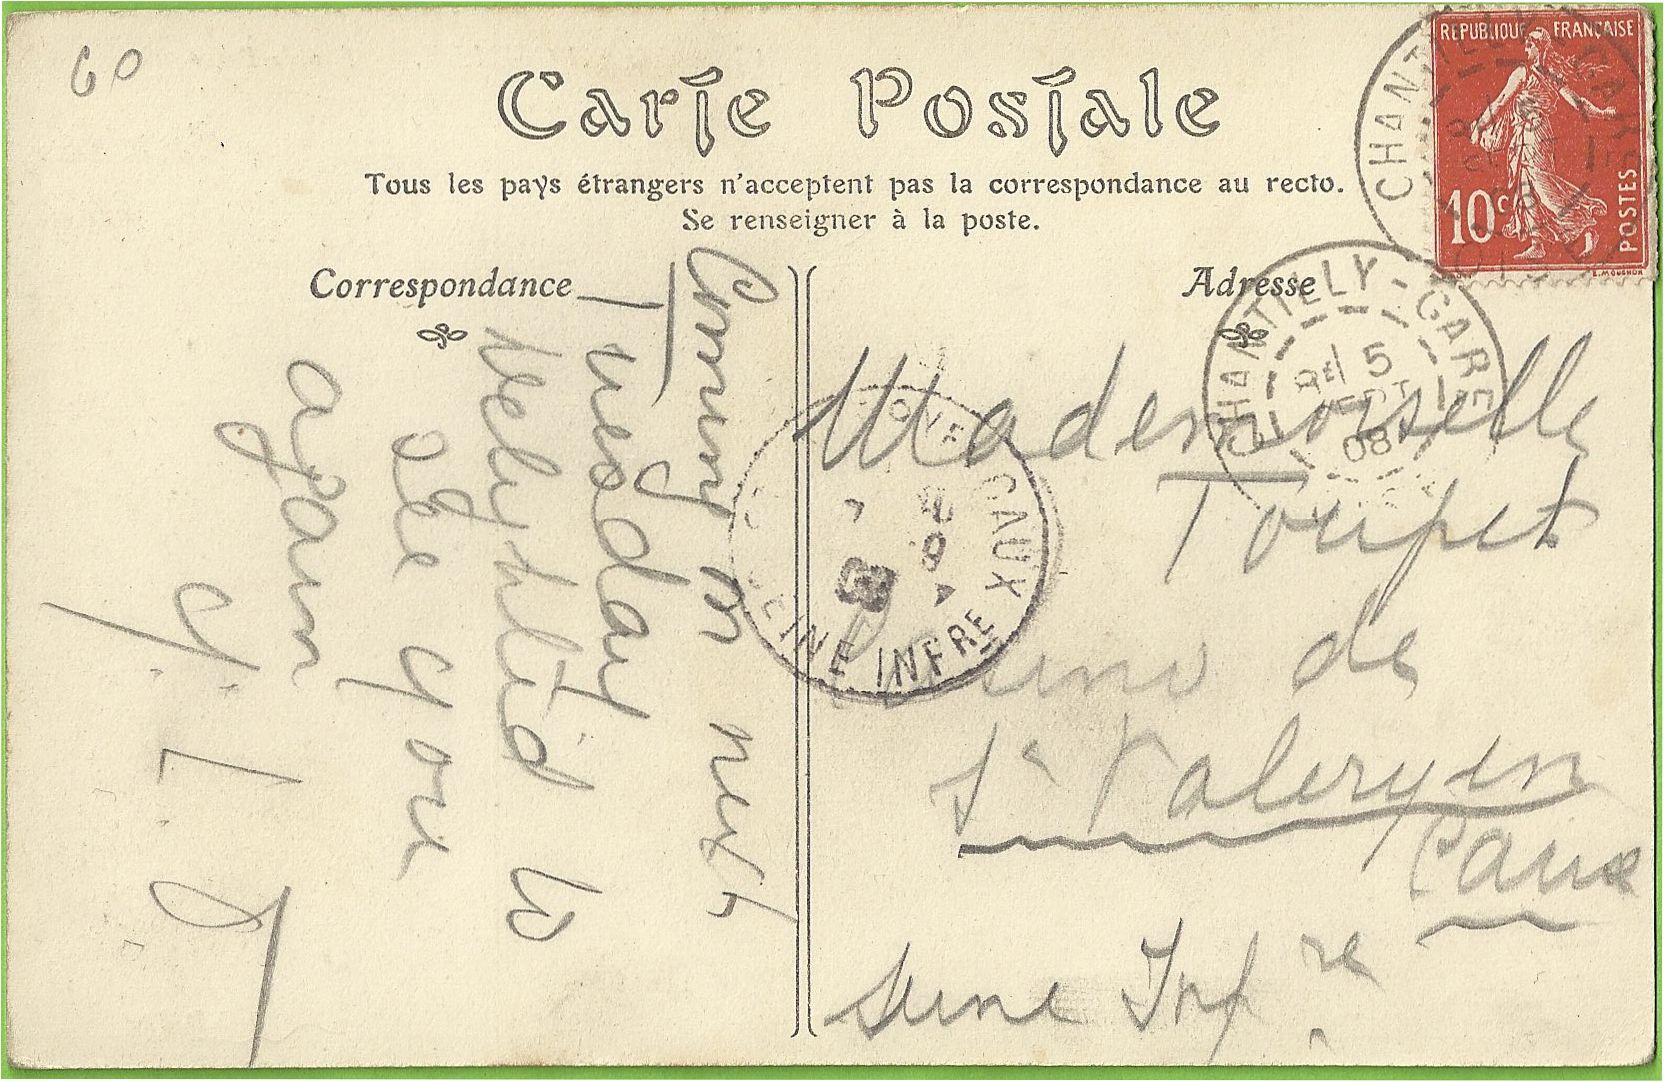 60
Carte Postale
Tous les pays étrangers n'acceptent pas la correspondance au recto.
Se renseigner à la poste.
Correspondance
Adresse
REPUBLIQUE FRANÇAISE
10c
POSTES
E. MOUCHON
CHANTILLY-GARE
CHANTILLY-GARE
8E 15
SEPT
08
OISE
CAUX
SEINE INFRE
Coming on next
Tuesday
delighted to
see you
again
y. L. J
Mademoiselle
Toupet
de
St Valery en
Caux
Seine Infre